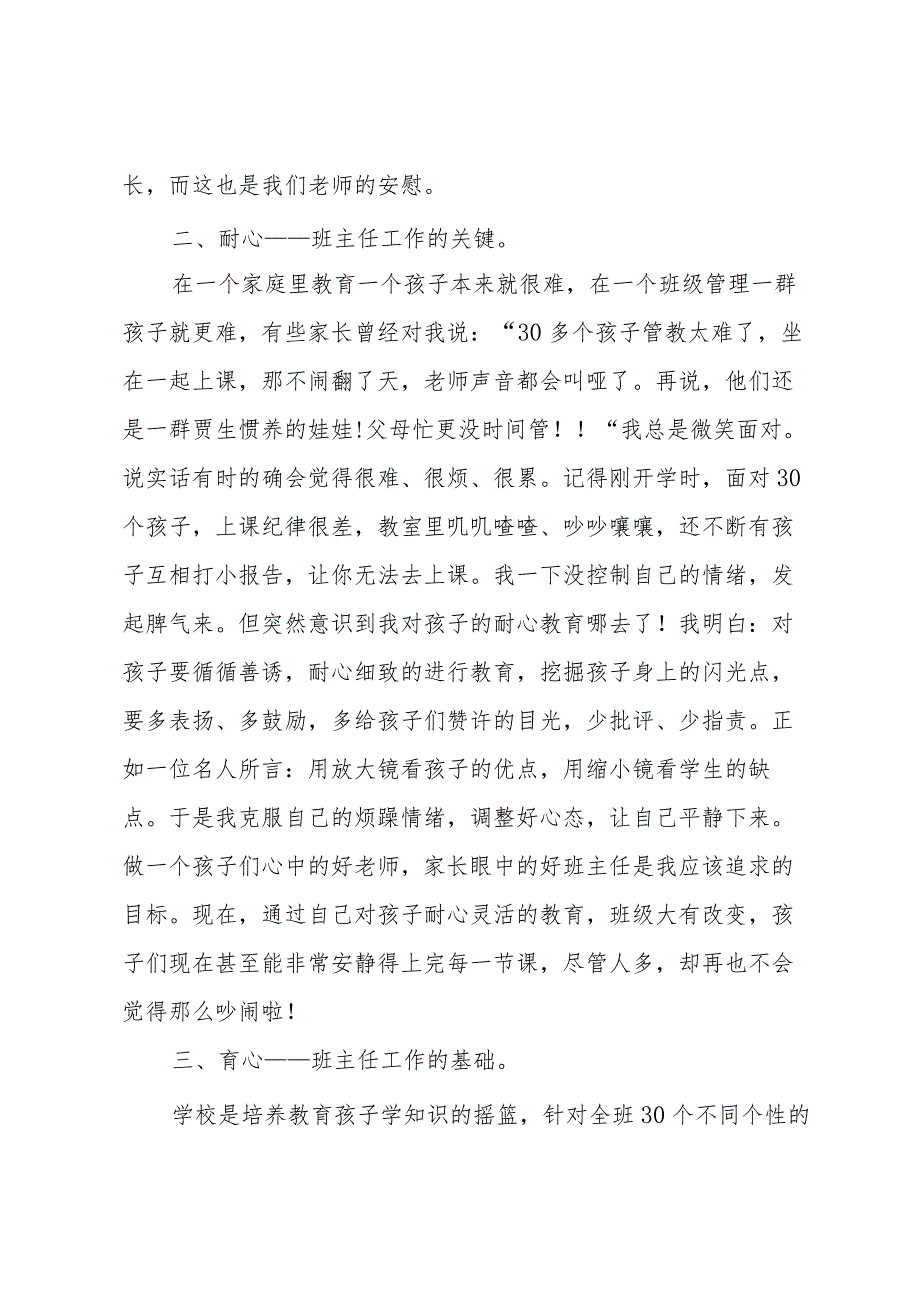 长，而这也是我们老师的安慰。
二、耐心——班主任工作的关键。
在一个家庭里教育一个孩子本来就很难，在一个班级管理一群
孩子就更难，有些家长曾经对我说：“30 多个孩子管教太难了，坐
在一起上课，那不闹翻了天，老师声音都会叫哑了。再说，他们还
是一群贾生惯养的娃娃!父母忙更没时间管！！“我总是微笑面对。
说实话有时的确会觉得很难、很烦、很累。记得刚开学时，面对 30
个孩子，上课纪律很差，教室里叽叽喳喳、吵吵嚷嚷，还不断有孩
子互相打小报告，让你无法去上课。我一下没控制自己的情绪，发
起脾气来。但突然意识到我对孩子的耐心教育哪去了！我明白：对
孩子要循循善诱，耐心细致的进行教育，挖掘孩子身上的闪光点，
要多表扬、多鼓励，多给孩子们赞许的目光，少批评、少指责。正
如一位名人所言：用放大镜看孩子的优点，用缩小镜看学生的缺
点。于是我克服自己的烦躁情绪，调整好心态，让自己平静下来。
做一个孩子们心中的好老师，家长眼中的好班主任是我应该追求的
目标。现在，通过自己对孩子耐心灵活的教育，班级大有改变，孩
子们现在甚至能非常安静得上完每一节课，尽管人多，却再也不会
觉得那么吵闹啦！
三、育心——班主任工作的基础。
学校是培养教育孩子学知识的摇篮，针对全班 30 个不同个性的